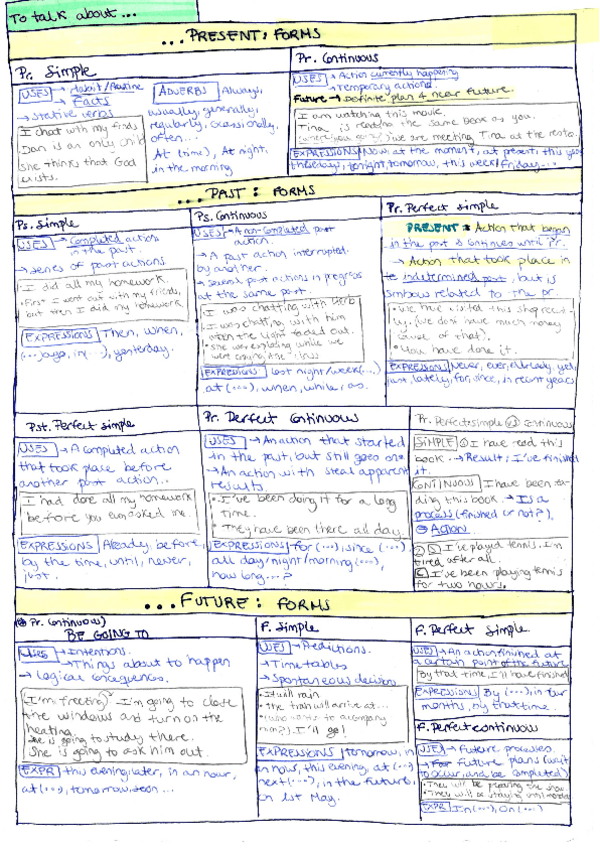 To talk about...
...PRESENT: FORMS
Pr. Simple
USES → habit/Routine
→ Facts
→ stative verbs
I chat with my frinds
Dan is an only child
She thinks that God
exists.
ADVERBS Always,
usually, generally,
regularly, occasionally,
often...
At (time), At night,
in the morning
Pr. Continuous
USES → Action currently happening
→ temporary actions.
Future → Definite plan 4 near future.
I am watching this movie.
Tina is reading the same book as you.
we are meeting Tina at the
EXPRESSIONS Now, at the moment, at present, this year
these days, tonight, tomorrow, this week/Friday...
...PAST: FORMS
Ps. Simple
USES → Completed action
in the past
→ series of past actions
I did all my homework.
First I went out with my friends,
but then I did my homework
EXPRESSIONS Then, when,
(...)ago, in(...), yesterday.
Ps. Continuous
USES → A non-completed past
action.
→ A past action interrupted
by another.
→ several past actions in progress
at the same
I was chatting with
I was chatting with him
when the light faded out.
She was exploding while we
were
EXPRESSIONS last night/week(...)
at (...), when, while, as.
Pr. Perfect simple
PRESENT: Action that began
in the past & continues until Pr.
→ Action that took place in
indetermined past, but is
related to the pr.
We have visited this shop
(we don't have much money
cause of that).
You have done it.
EXPRESSIONS Never, ever, already, yet
just, lately, for, since, in recent years
Pst. Perfect simple
USES → A completed action
that took place before
another past action..
I had done all my homework
before you me.
EXPRESSIONS Already, before,
by the time, until, never,
just.
Pr. Perfect Continuous
USES → An action that started
in the past, but still goes on
→ An action with apparent
results
• I've been doing it for a long
time.
• They have been there all day.
EXPRESSIONS for (...), since (...)
all day/night/morning(...),
how long...?
Pr. Perfect simple VS Continuous
SIMPLE I have read this
book. → Result: I've finished
it.
CONTINUOUS I have been rea-
ding this book → Is a
process (finished or not?).
Action
S I've played tennis. I'm
tired after all.
C I've been playing tennis
for two hours.
...FUTURE: FORMS
Pr. Continuous)
BE GOING TO
USES → Intentions.
→ Things about to happen
→ Logical
(I'm freezing) I'm going to close
the windows and turn on the
heating
She is going to study there.
She is going to ask him out.
EXPR this evening, later, in an hour,
at (...), tomorrow, soon...
F. Simple
USES → Predictions.
→ Time tables
→ Spontaneous decision
It will rain
• The train will arrive at...
(who wants to accompany
him?) I'll go!
EXPRESSIONS tomorrow, in
an hour, this evening, at (...)
next (...), in the future,
on 1st May.
F. Perfect simple
USES → An action finished at
a certain point of the future
By that time, I'll have finished
EXPRESSIONS By (...), in four
months, by that time.
F. Perfect continuous
USES → Future processes.
→ For future plans (wait
to occur, and be completed)
• They will be preparing the show.
• They will be staying until
EXPR In(...), On (...)